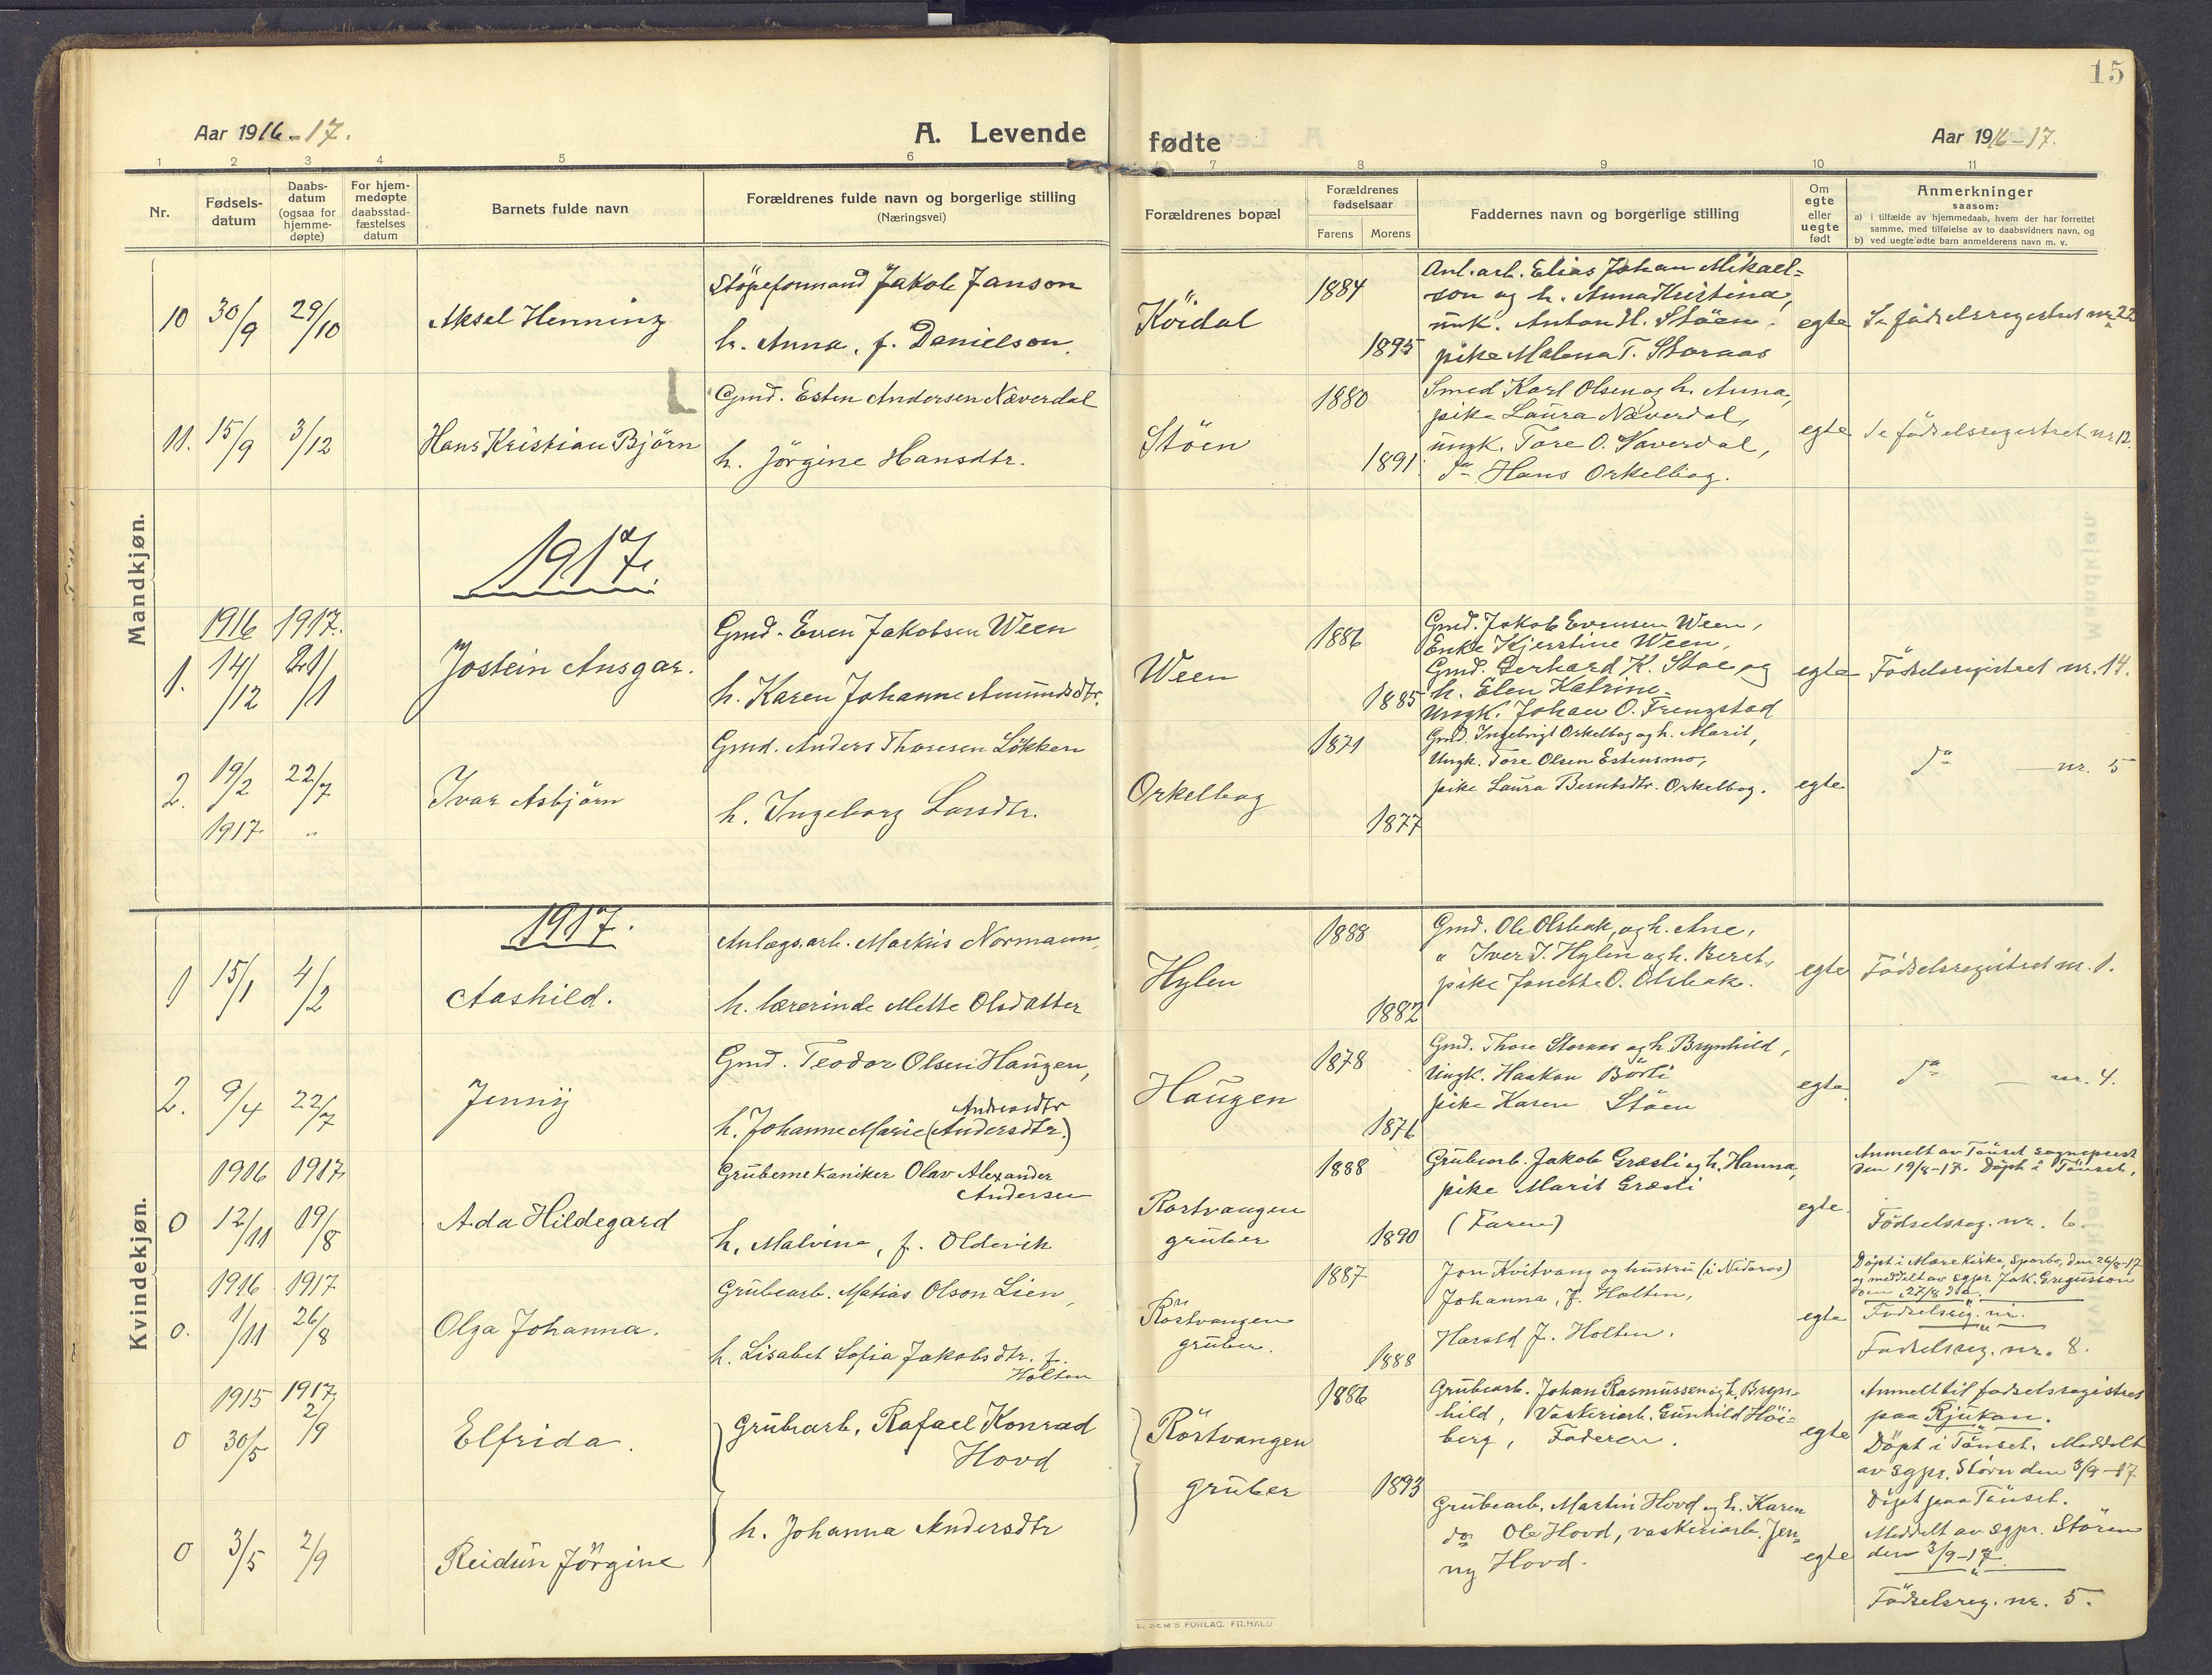 15
Aar 1916-17.
A. Levende
fødte
Aar 1916-17.
1 2 3 4 5 6 7 8 9 10 11
Nr.
Fødsels-
datum
Daabs-
datum
(ogsaa for
hjemme-
døpte)
For hjem-
medøpte
daabsstad-
fæstelses
datum
Barnets fulde navn
Forældrenes fulde navn og borgerlige stilling
(Næringsvei)
Forældrenes bopæl
Forældrenes
fødselsaar
Farens Morens
Faddernes navn og borgerlige stilling
Om
egte
eller
uegte
født
Anmerkninger
saasom:
a) i tilfælde av hjemmedaab, hvem der har forrettet
samme, med tilføielse av to daabsvidners navn, og
b) ved uegte fødte barn anmelderens navn m. v.
Mandkjøn.
10 30/9 29/10
Aksel Henning
Støpeformand Jakob Janson
h. Anna, f. Danielson.
Kvidal
1884
1895
Anl.arb. Elias Johan Mikael-
son og h. Anna Kristina,
unk. Anton H. Støen.
pike Malena T. Storaas
egte
Se fødselsregistret nr 22
11. 15/9 3/12
Hans Kristian Bjørn
Gmd. Esten Andersen Næverdal
h. Jørgine Hansdtr.
Støen
1880
1891
Smed Karl Olsen og h. Anna,
pike Laura Næverdal,
ungk. Tore O. Naverdal,
do Hans Orkelbog.
egte
Se fødselsregistret nr 12.
1917.
1916 1917.
1. 14/12 21/1
Jostein Ansgar.
Gmd. Even Jakobsen Ween
h. Karen Johanne Amundsdtr.
Ween
1886
1885
Gmd. Jakob Evensen Ween,
Enke Kjerstine Ween,
Gmd. Gerhard K. Stoe og
h. Elen Katrine.
Ungk. Johan O. Frengstad
egte
Fødselsregistret nr. 14.
2. 19/2 22/7
1917 "
Ivar Asbjørn
Gmd. Anders Thoresen Løkken
h. Ingeborg Larsdtr.
Orkelbog
1871
1877
Gmd. Ingebrigt Orkelbog og h. Marit,
Ungk. Tore Olsen Estensmo,
pike Laura Berntsdtr. Orkelbog.
egte
do — nr. 5
Kvindekjøn.
1917.
1 15/1 4/2
Aashild.
Anlægs.arb. Markus Normann,
h. lærerinde Mette Olsdatter
Hylen
1888
1882
Gmd. Ole Olsbak, og h. Ane,
" Iver J. Hylen og h. Beret,
pike Jonette O. Olsbak.
egte
Fødselsregistret nr. 1.
2. 9/4 22/7
Jenny
Gmd. Teodor Olsen Haugen,
Andreasdtr
h. Johanne Marie (Andersdtr.)
Haugen
1878
1876
Gmd. Thore Storaas og h Brynhild,
Ungk. Haakon Børli
pike Karen Støen
egte.
do — nr. 4.
1916 1917
0 12/11 19/8
Ada Hildegard
Grubemekaniker Olav Alexander
Andersen
h. Malvine, f. Oldervik
Rostvangen
gruber
1888
1890
Grubearb. Jakob Græsli og h. Hanna,
pike Marit Græsli
(Faren)
egte.
Anmelt av Tønset sogneprest
den 19/8-17. Døpt i Tønset.
Fødselsreg. nr. 6.
1916 1917
0. 1/11 26/8
Olga Johanna.
Grubearb. Matias Olson Lien,
h. Lisabet Sofia Jakobsdtr. f.
Holten
Røstvangen
gruber.
1887
1888
Jon Kvitvang og hustru (i Nidaros)
Johanna, f. Holten,
Harald J. Holten.
egte
Døpt i Mære Kirke, Sparbo, den 26/8-17
og meddelt av sgpr. Jak. Gregusson
den 27/8 d.a.
Fødselsreg. nr.
Fødselsreg. nr. 8.
1915 1917
0 30/5 2/9
Elfrida.
Grubearb. Rafael Konrad
Hovd
h. Johanna Andersdtr
Røstvangen
gruber
1886
1893
Grubearb. Johan Rasmussen og h. Bryn-
hild, Vaskeriarb. Gunhild Høi-
berg, Faderen.
egte
Anmelt til fødselsregistret
paa Rjukan.
Døpt i Tønset. Meddelt
av sgpr. Støren den 3/9-17
0 3/5 2/9
Reidun Jørgine
Grubearb. Martin Hovd og h. Karen
do Ole Hovd, vaskeriarb. Jen-
ny Hovd.
egte
Døpt paa Tønset.
Meddelt av sgpr. Støren
den 3/9-17.
Fødselsreg. nr. 5.
E. SEM'S FORLAG. FR.HALD